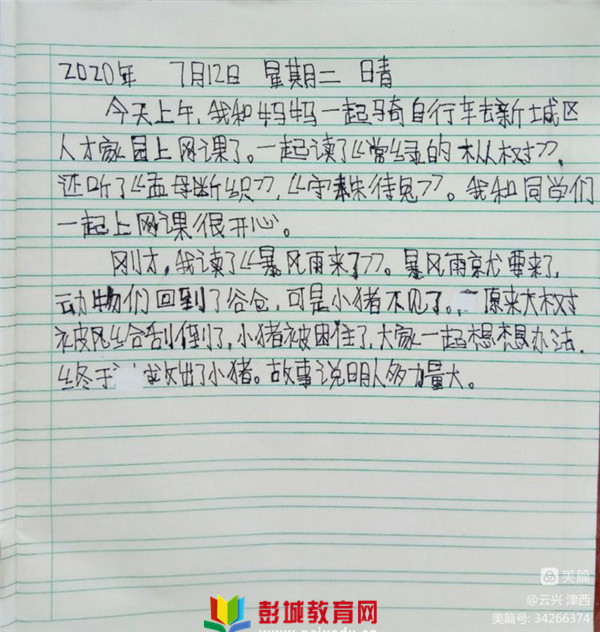 2020年 7月12日 星期二 晴
今天上午,我和妈妈一起骑自行车去新城区
人才家园上网课了。一起读了《常绿的松树》,
还听了《孟母断织》,《守株待兔》。我和同学们
一起上网课很开心。
刚才,我读了《暴风雨来了》。暴风雨就要来了,
动物们回到了谷仓,可是小猪不见了。原来大树
被风给刮倒了,小猪被困住了,大家一起想想办法,
终于救出了小猪。故事说明人多力量大。
美篇
@云兴 津西
美篇号: 34266374
彭城教育网